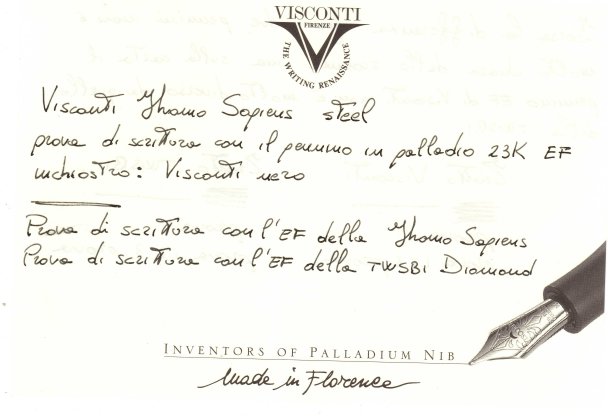 VISCONTI
FIRENZE
THE WRITING RENAISSANCE
Visconti Homo Sapiens steel
prova di scrittura con il pennino in palladio 23K EF
inchiostro: Visconti nero
Prova di scrittura con l'EF della Homo Sapiens
Prova di scrittura con l'EF della TWSBI Diamond
INVENTORS OF PALLADIUM NIB
made in Florence